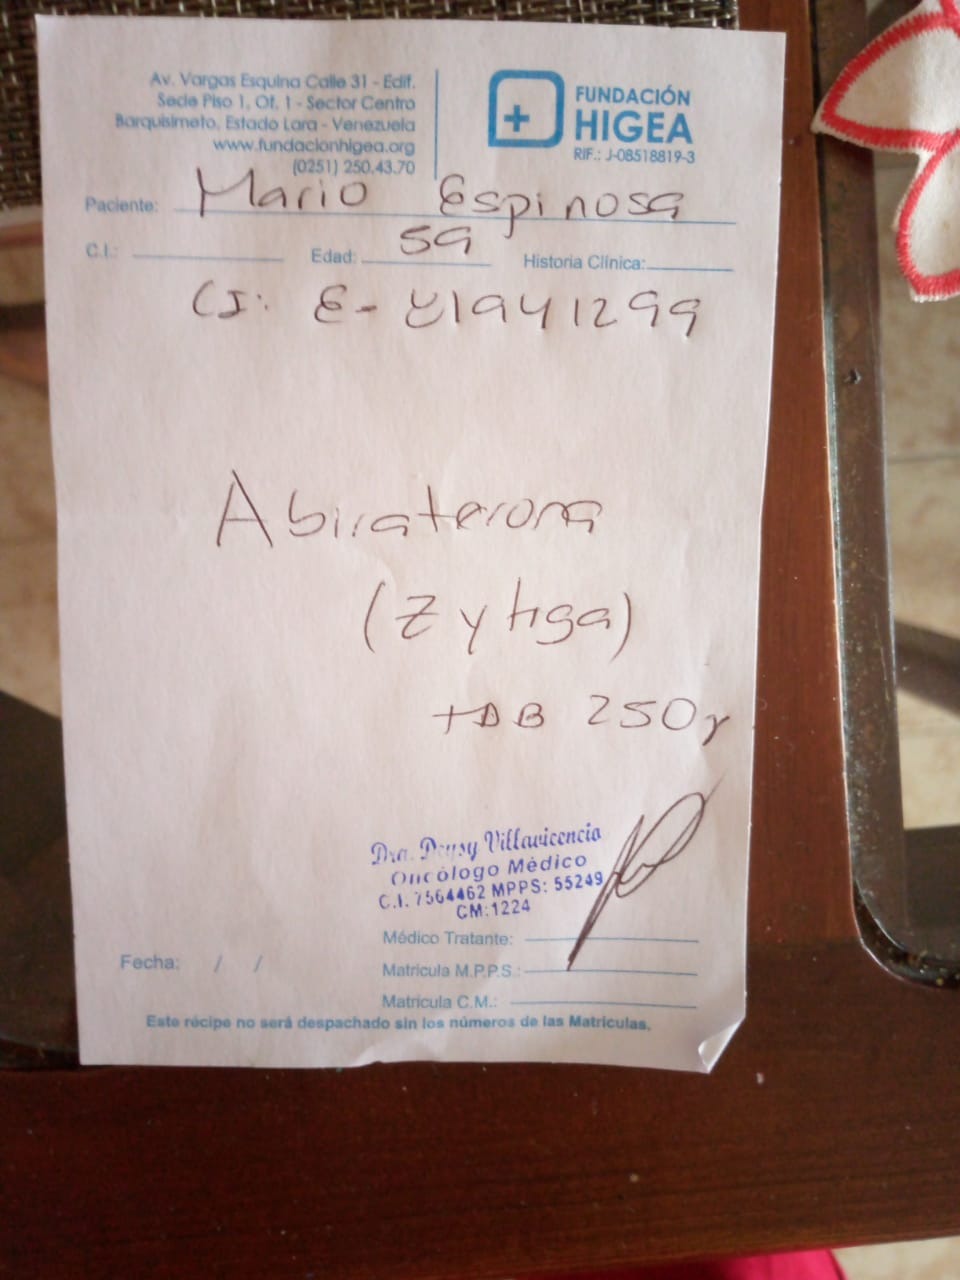 Av. Vargas Esquina Calle 31 - Edif.
Sede Piso 1, Of. 1 - Sector Centro
Barquisimeto, Estado Lara - Venezuela
www.fundacionhigea.org
(0251) 250.43.70
FUNDACIÓN
HIGEA
RIF.: J-08518819-3
Paciente: Mario Espinosa
C.I.: Edad: 59 Historia Clínica:
CI: E- 81941299
Abiraterona
(Zytiga)
250
Dra. Deysy Villavicencio
Oncólogo Médico
C.I. 7564462 MPPS: 55249
CM:1224
Médico Tratante:
Fecha: / /
Matricula M.P.P.S.:
Matricula C.M.:
Este récipe no será despachado sin los números de las Matriculas.